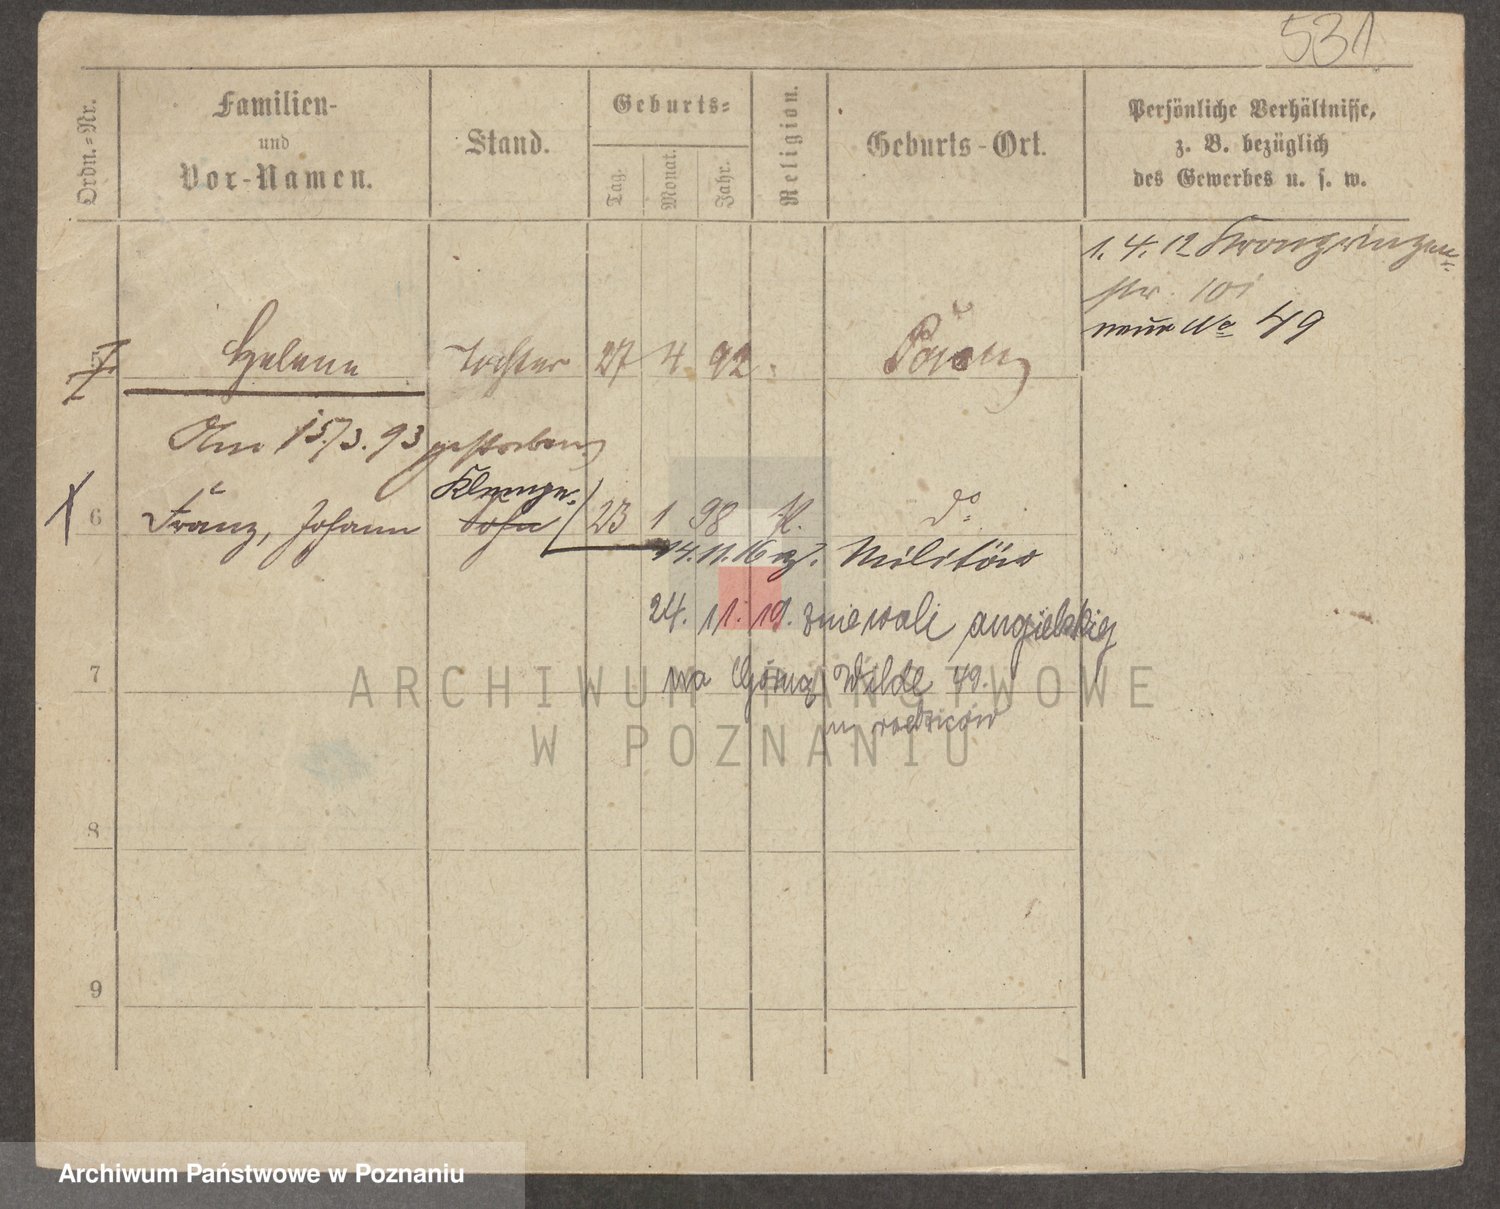 531
Ordn.-Nr.
Familien- und Vor-Namen.
Stand.
Geburts-
Tag. Monat. Jahr.
Religion.
Geburts-Ort.
Persönliche Verhältnisse,
z. B. bezüglich
des Gewerbes u. s. w.
1. 4. 12 Kronprinzen-
str. 101
neue No 49
Helene Tochter 27 4 92 Posen
Am 15/3. 93 gestorben
Klempn.
6 Franz, Johann Sohn 23 1 98 K. do
14. 11. 16 z. Militär
24. 11. 19. z niewoli angielskiej
na Górną Wildę 49.
u rodziców
7
8
9
ARCHIWUM PAŃSTWOWE
W POZNANIU
Archiwum Państwowe w Poznaniu